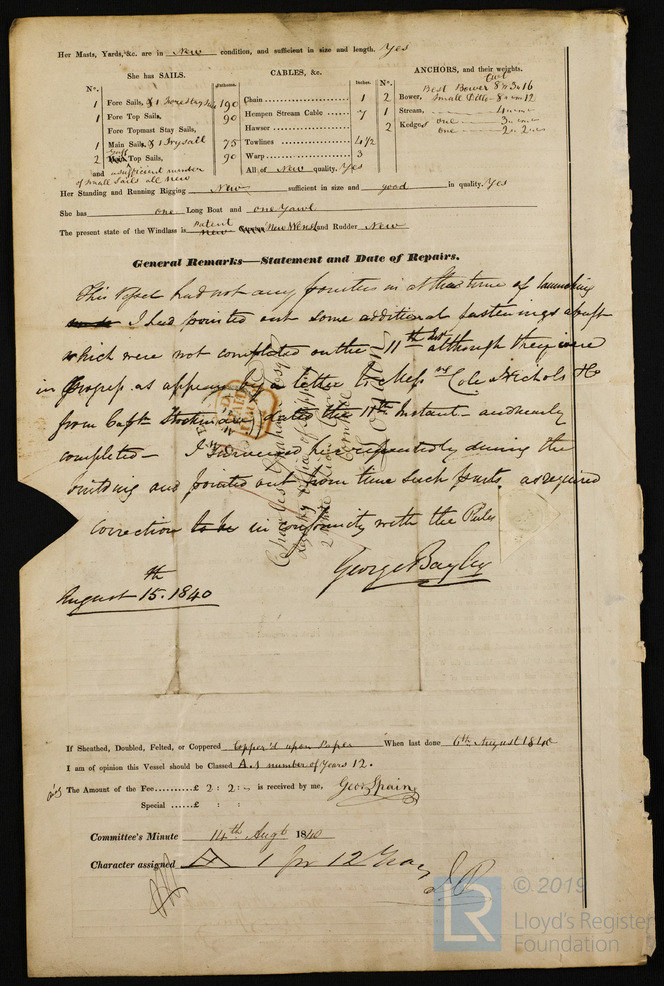 Her Masts, Yards, &c. are in New condition, and sufficient in size and length. Yes
She has SAILS.
CABLES, &c.
ANCHORS, and their weights.
N°.
Fathoms.
Inches.
N°.
Cwt
Best Bower 8 " 3 " 16
1 Fore Sails, & 1 Forestay Sail 190
Chain 1
2 Bower, Small Ditto 8 " " 12
1 Fore Top Sails, 90
Hempen Stream Cable 7
1 Stream, 4
Fore Topmast Stay Sails,
Hawser
2 Kedges one 3
1 Main Sails, & 1 Trysail 75
Towlines 4 1/2
one 2 " 2
2 Gaff Top Sails, 90
Warp 3
and a sufficient number of Small Sails all New
All of New quality. Yes
Her Standing and Running Rigging New sufficient in size and good in quality. Yes
She has one Long Boat and one Yawl
The present state of the Windlass is Patent New and Rudder New
General Remarks—Statement and Date of Repairs.
This Vessel had not any in at the time of launching
I had pointed out some additional fastenings
which were not completed on the 11th although they were
in progress as appears by a letter to Mess rs Cole Nichols & Co
from Capt dated the 11th Instant and newly
completed – I surveyed her repeatedly during the
building and pointed out from time such parts as required
correction to be in conformity with the Rules
George Bayley
August 15th. 1840
Charles Graham Esqr
Registry Office of Shipping
2 White Lion Court
Cornhill
London
If Sheathed, Doubled, Felted, or Coppered Copper'd upon Paper When last done 6th August 1840
I am of opinion this Vessel should be Classed A.1 number of Years 12.
The Amount of the Fee £ 2 : 2 : " is received by me, Geo. Spain
Special £ : :
Committee's Minute 14th Augt 1840
Character assigned A 1 for 12 Years
© 2019
LR
Lloyd's Register
Foundation